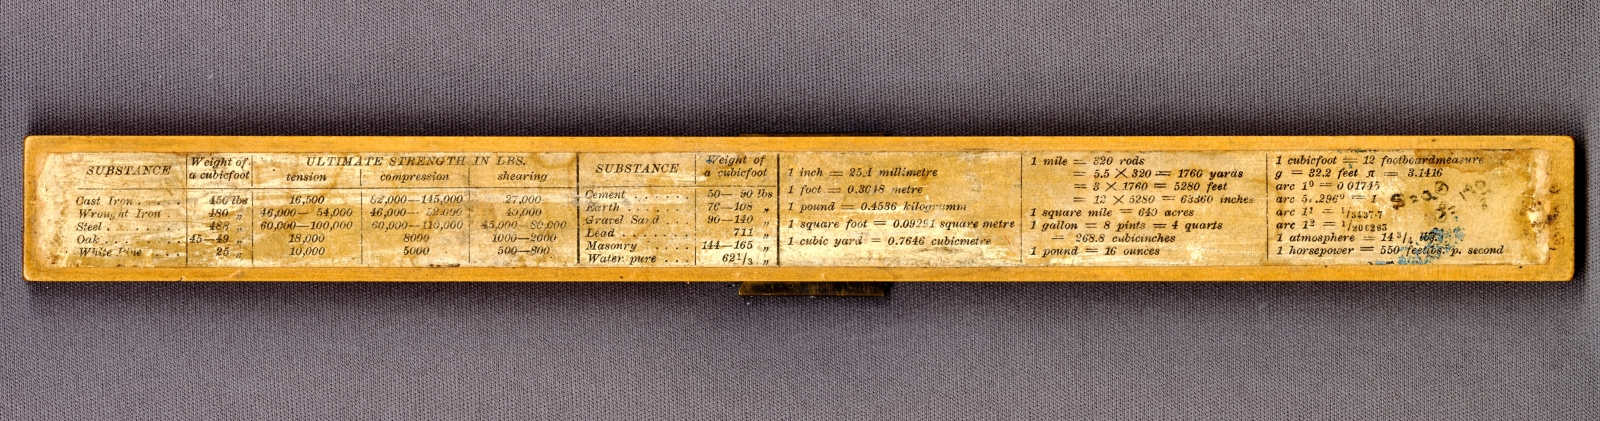 SUBSTANCE Weight of a cubicfoot ULTIMATE STRENGTH IN LBS.
tension compression shearing
Cast Iron 450 lbs 16,500 82,000—145,000 27,000
Wrought Iron 480 „ 46,000— 54,000 46,000— 45,000
Steel 488 „ 60,000—100,000 60,000—110,000 45,000—80,000
Oak 45—49 „ 18,000 8000 1000—2000
White Pine 25 „ 10,000 5000 500—800
SUBSTANCE Weight of a cubicfoot
Cement 50— 90 lbs
Earth 76—108 „
Gravel Sand 90—140 „
Lead 711 „
Masonry 144—165 „
Water pure 62 1/3 „
1 inch = 25.4 millimetre
1 foot = 0.3048 metre
1 pound = 0.4536 kilogramm
1 square foot = 0.09291 square metre
1 cubic yard = 0.7646 cubicmetre
1 mile = 320 rods
= 5.5 × 320 = 1760 yards
= 3 × 1760 = 5280 feet
= 12 × 5280 = 63360 inches
1 square mile = 640 acres
1 gallon = 8 pints = 4 quarts
= 268.8 cubicinches
1 pound = 16 ounces
1 cubicfoot = 12 footboardmeasure
g = 32.2 feet π = 3.1416
arc 1° = 0.01745
arc 57.296° = 1
arc 1¹ = 1/3437·7
arc 1² = 1/206265
1 atmosphere = 14 3/4
1 horsepower = 550 feetlbs. p. second